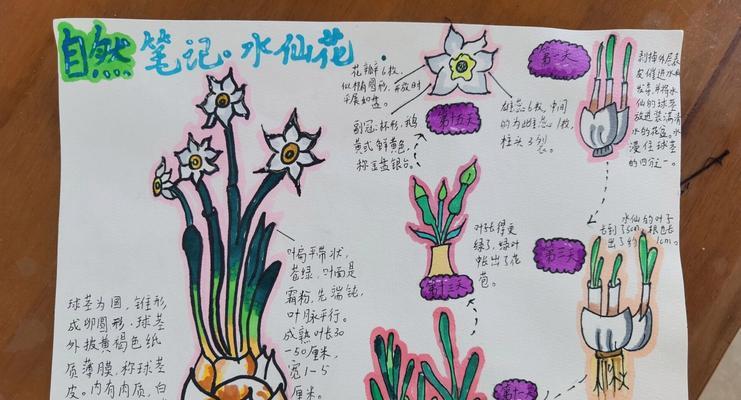 自然笔记·水仙花
花瓣6枚,
似椭圆形,开放时
平展如盘。
副冠:杯形,鹅
黄或鲜黄色,
称金盏银台。
雄蕊6枚,中间
的为雌蕊1枚,
柱头3裂。
第十五天
第一天
剥掉外层表
皮催进水
发芽,并将水
仙的球茎
放进装满清
水的花盆。水
漫住球茎
的四分一。
水仙的叶子
长到了3cm,根也长
出了约1cm。
第三天
叶子长得更
绿了,绿叶
中长出了花
苞。
第十三天
第十一天
叶扁平带状,
苍绿,叶面是
霜粉,先端钝,
叶脉平行。
成熟叶长30
-50厘米,
宽1-5
厘米。
球茎为圆,锥形,
成卵圆形。球茎
外披黄褐色纸
质薄膜,称球茎
皮。内有肉质,白